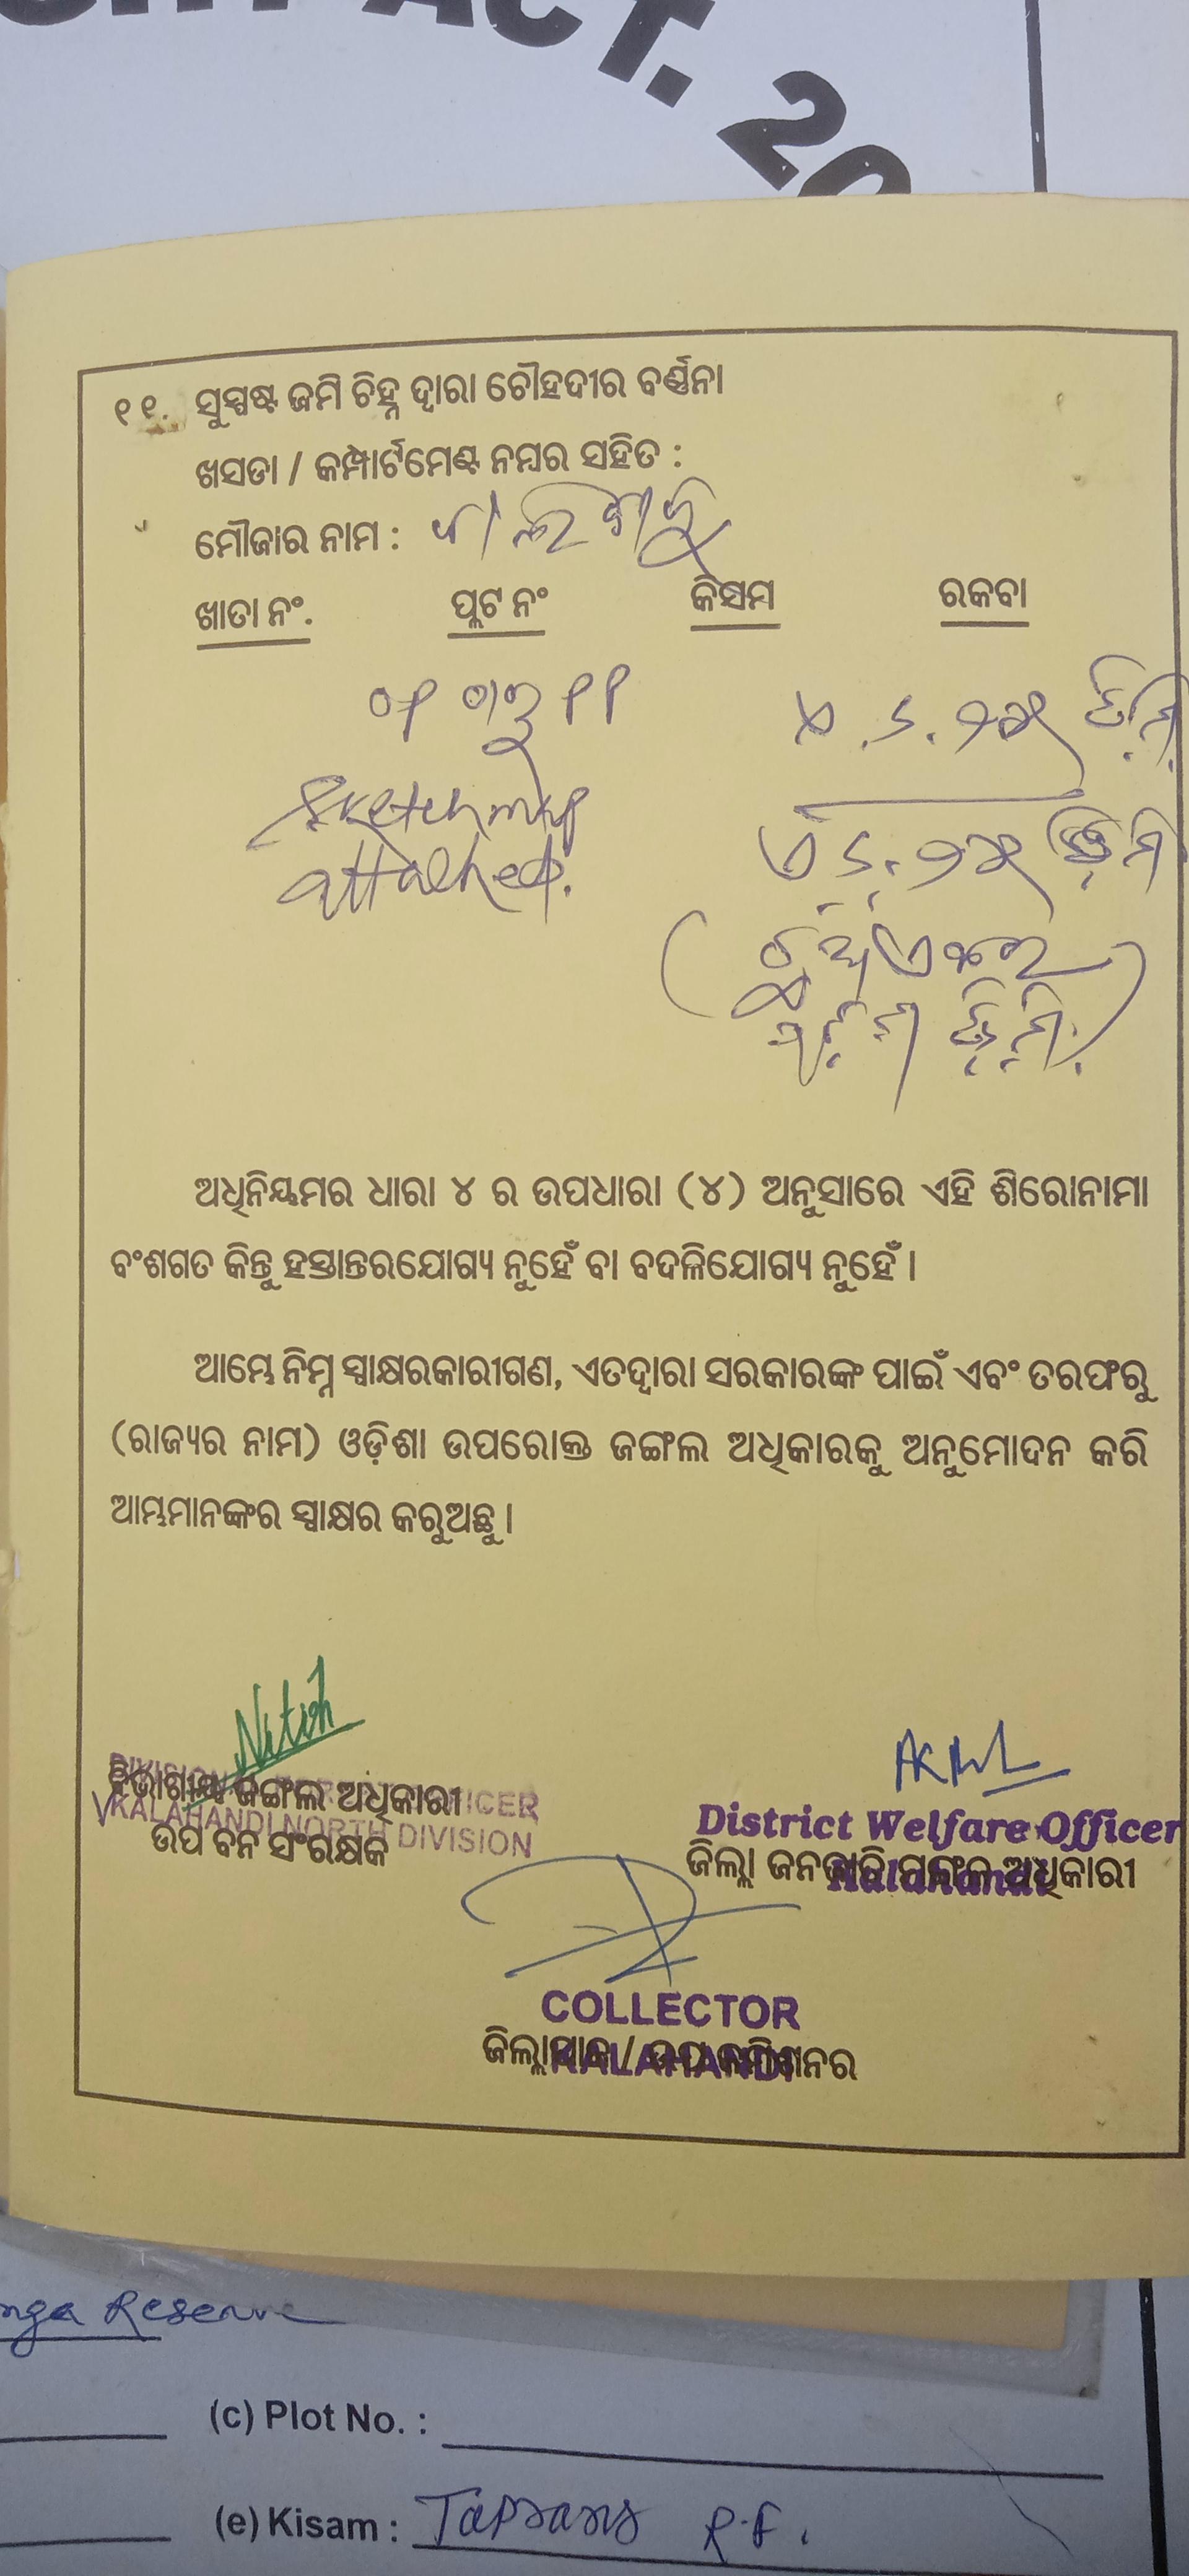 ACT. 20
୧୧. ସୁସ୍ପଷ୍ଟ ଜମି ଚିହ୍ନ ଦ୍ୱାରା ଚୌହଦୀର ବର୍ଣ୍ଣନା
ଖସଡା / କମ୍ପାର୍ଟମେଣ୍ଟ ନମ୍ବର ସହିତ :
ମୌଜାର ନାମ :
ଖାତା ନଂ. ପ୍ଲଟ ନଂ କିସମ ରକବା
Sketch map
attached.
ଅଧିନିୟମର ଧାରା ୪ ର ଉପଧାରା (୪) ଅନୁସାରେ ଏହି ଶିରୋନାମା
ବଂଶଗତ କିନ୍ତୁ ହସ୍ତାନ୍ତରଯୋଗ୍ୟ ନୁହେଁ ବା ବଦଳିଯୋଗ୍ୟ ନୁହେଁ ।
ଆମ୍ଭେ ନିମ୍ନ ସ୍ୱାକ୍ଷରକାରୀଗଣ, ଏତଦ୍ୱାରା ସରକାରଙ୍କ ପାଇଁ ଏବଂ ତରଫରୁ
(ରାଜ୍ୟର ନାମ) ଓଡ଼ିଶା ଉପରୋକ୍ତ ଜଙ୍ଗଲ ଅଧିକାରକୁ ଅନୁମୋଦନ କରି
ଆମ୍ଭମାନଙ୍କର ସ୍ୱାକ୍ଷର କରୁଅଛୁ ।
Nitish
ବିଭାଗୀୟ ଜଙ୍ଗଲ ଅଧିକାରୀ
KALAHANDI NORTH DIVISION
ଉପ ବନ ସଂରକ୍ଷକ
District Welfare Officer
ଜିଲ୍ଲା ଜନଜାତି ମଙ୍ଗଳ ଅଧିକାରୀ
Kalahandi
COLLECTOR
ଜିଲ୍ଲାପାଳ / ଉପ କମିଶନର
KALAHANDI
nga Reserve
(c) Plot No. :
(e) Kisam : R.F.